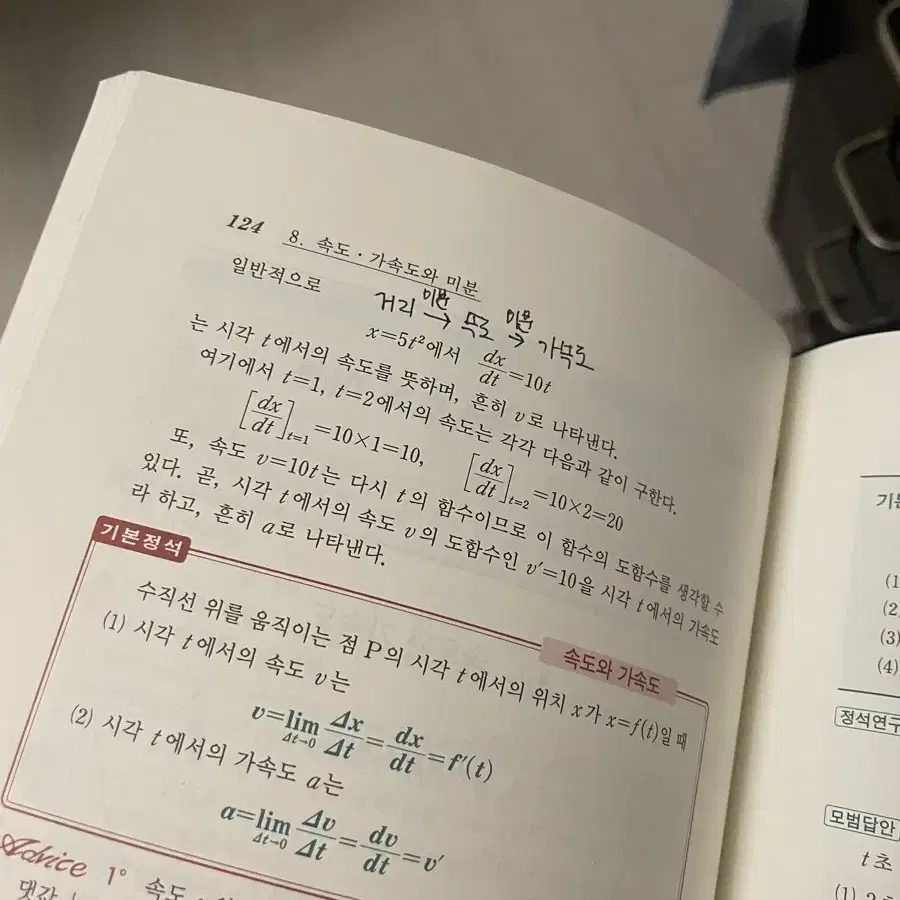 124 8. 속도·가속도와 미분
일반적으로
거리 미분→ 속도 미분→ 가속도
x=5t²에서 dx/dt=10t
는 시각 t에서의 속도를 뜻하며, 흔히 v로 나타낸다.
여기에서 t=1, t=2에서의 속도는 각각 다음과 같이 구한다.
[dx/dt]t=1=10×1=10, [dx/dt]t=2=10×2=20
또, 속도 v=10t는 다시 t의 함수이므로 이 함수의 도함수를 생각할 수
있다. 곧, 시각 t에서의 속도 v의 도함수인 v′=10을 시각 t에서의 가속도
라 하고, 흔히 a로 나타낸다.
기본정석
속도와 가속도
수직선 위를 움직이는 점 P의 시각 t에서의 위치 x가 x=f(t)일 때
(1) 시각 t에서의 속도 v는
v=lim Δt→0 Δx/Δt=dx/dt=f′(t)
(2) 시각 t에서의 가속도 a는
a=lim Δt→0 Δv/Δt=dv/dt=v′
Advice 1° 속도
댓값
(1
(2)
(3)
(4)
정석연구
모범답안
t초
(1)